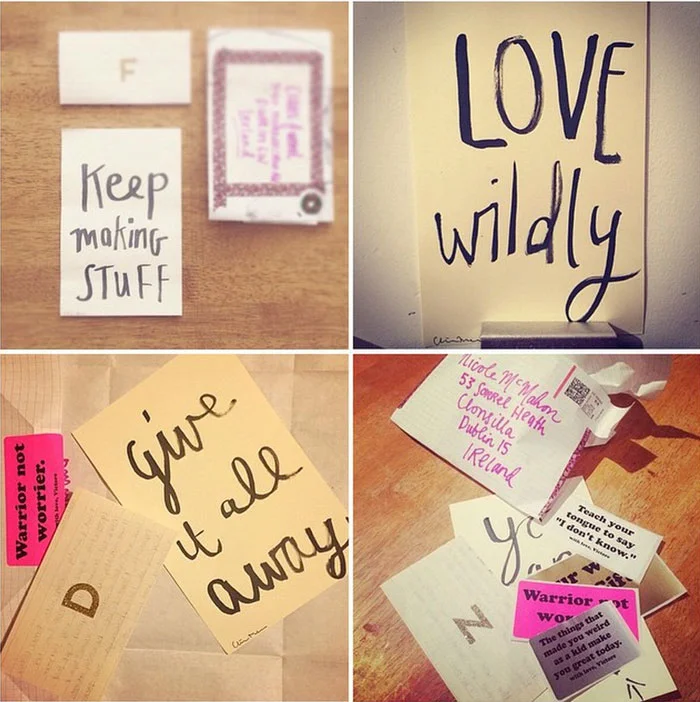 F
Keep
making
STUFF
Ireland
LOVE
wildly
give
it all
away
Warrior not
worrier.
with love, Victore
D
Nicole McMahon
53 Sorrel Heath
Clonsilla
Dublin 15
IRELAND
Teach your
tongue to say
"I don't know."
with love, Victore
Warrior not
wor
The things that
made you weird
as a kid make
you great today.
with love, Victore
N